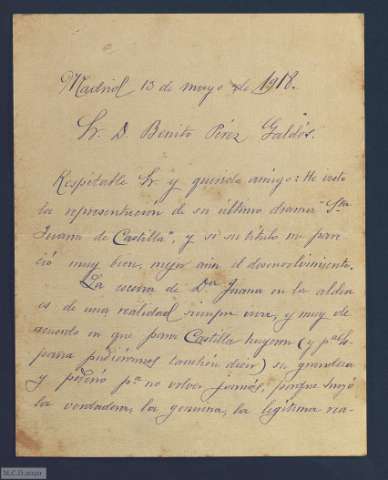 Madrid 13 de mayo de 1918.
Sr. D. Benito Pérez Galdós.
Respetable Sr. y querido amigo: He visto
la representacion de su último drama "Sta
Juana de Castilla", y si su título me pare-
ció muy bien, mejor aún el desenvolvimiento.
La escena de Dª Juana en la aldea
es de una realidad siempre viva, y muy de
acuerdo en que para Castilla huyeron (y pª Es-
paña pudiéramos también decir) su grandeza
y poderío pª no volver jamás, porque huyó
la verdadera, la genuina, la legítima rea-